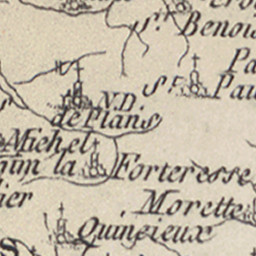 St. Benoi
Pa
St. Pau
N.D.
de Plans
Michel
la Forteresse
ier
Morette
Quincieux